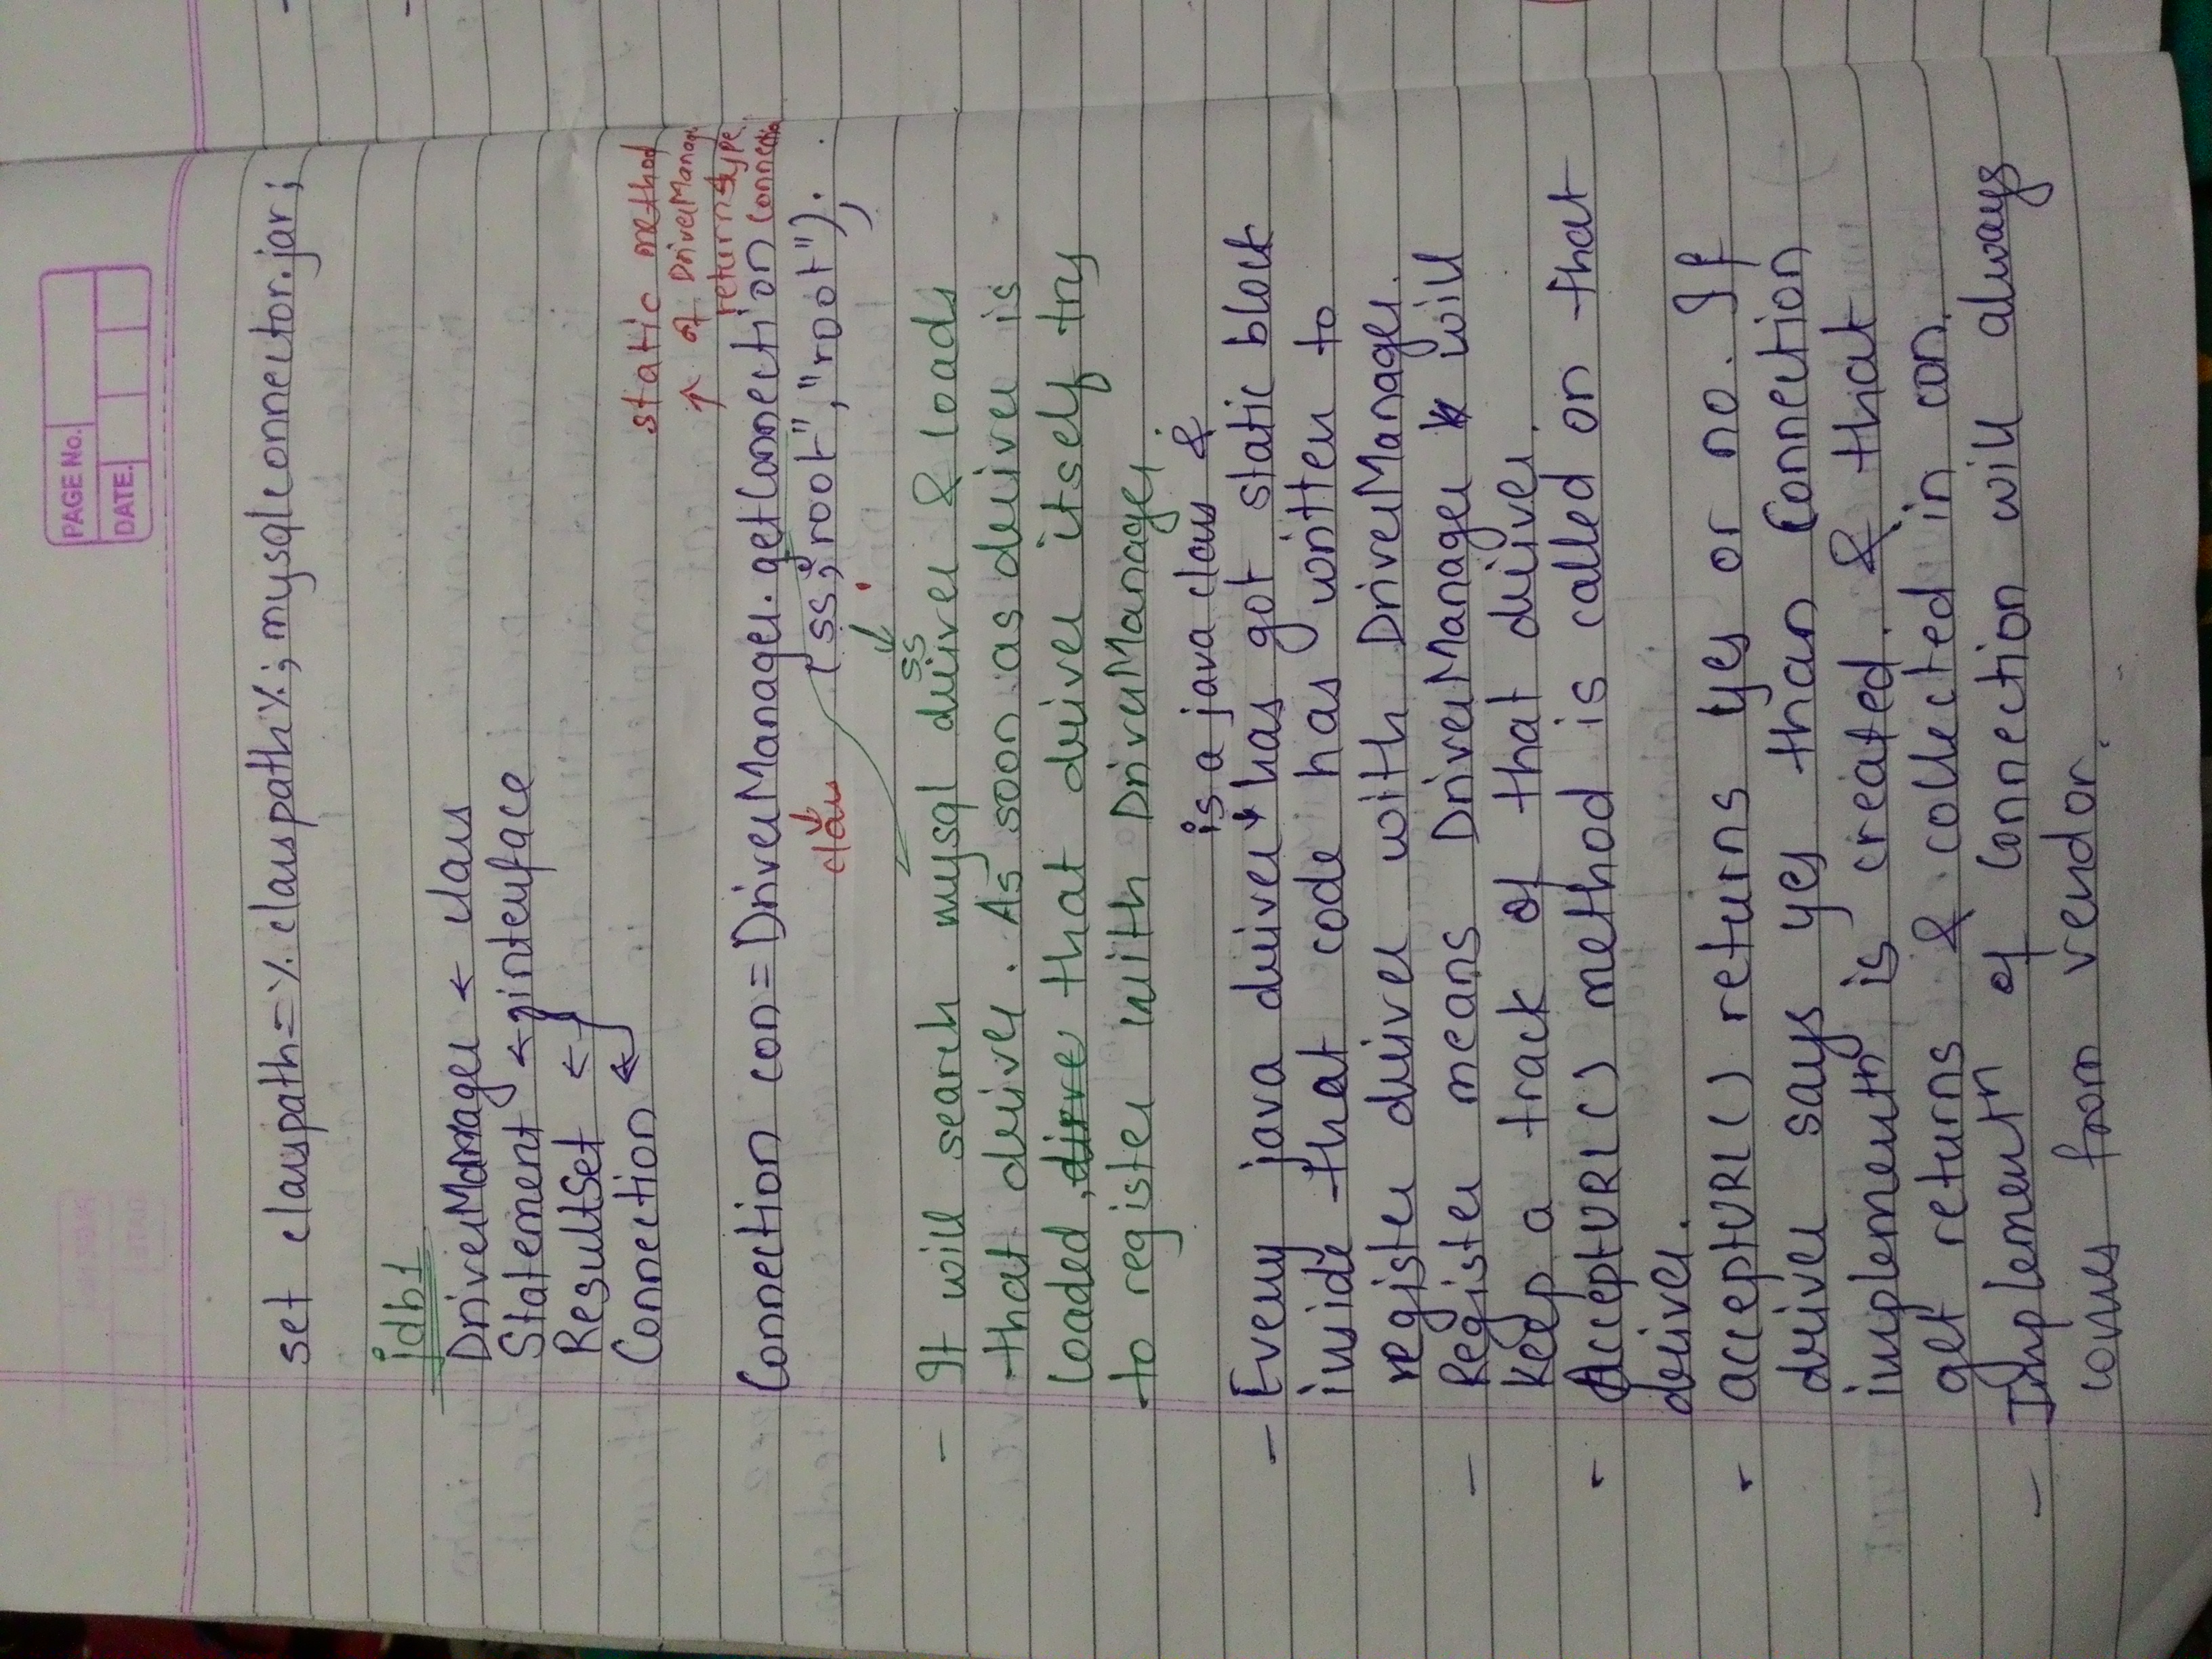 PAGE No.
DATE.
set classpath=%classpath%; mysqlconnector.jar;
jdb1
DriverManager ← class
Statement ← interface
ResultSet ←
Connection ←
static method
↑ of DriverManager
returns type
Connection con = DriverManager.getConnection Connection
class (ss, "root", "root");
ss
- It will search mysql driver & loads
that driver. As soon as driver is
loaded, dirve that driver itself try
to register with DriverManager.
is a java class &
- Every java driver has got static block
inside that code has written to
register driver with DriverManager.
- Register means DriverManager will
keep a track of that driver.
- AcceptURL() method is called on that
driver.
- acceptURL() returns yes or no. If
driver says yes than Connection
implementn is created. & that
get returns & collected in con.
- Implementn of Connection will always
comes from vendor.